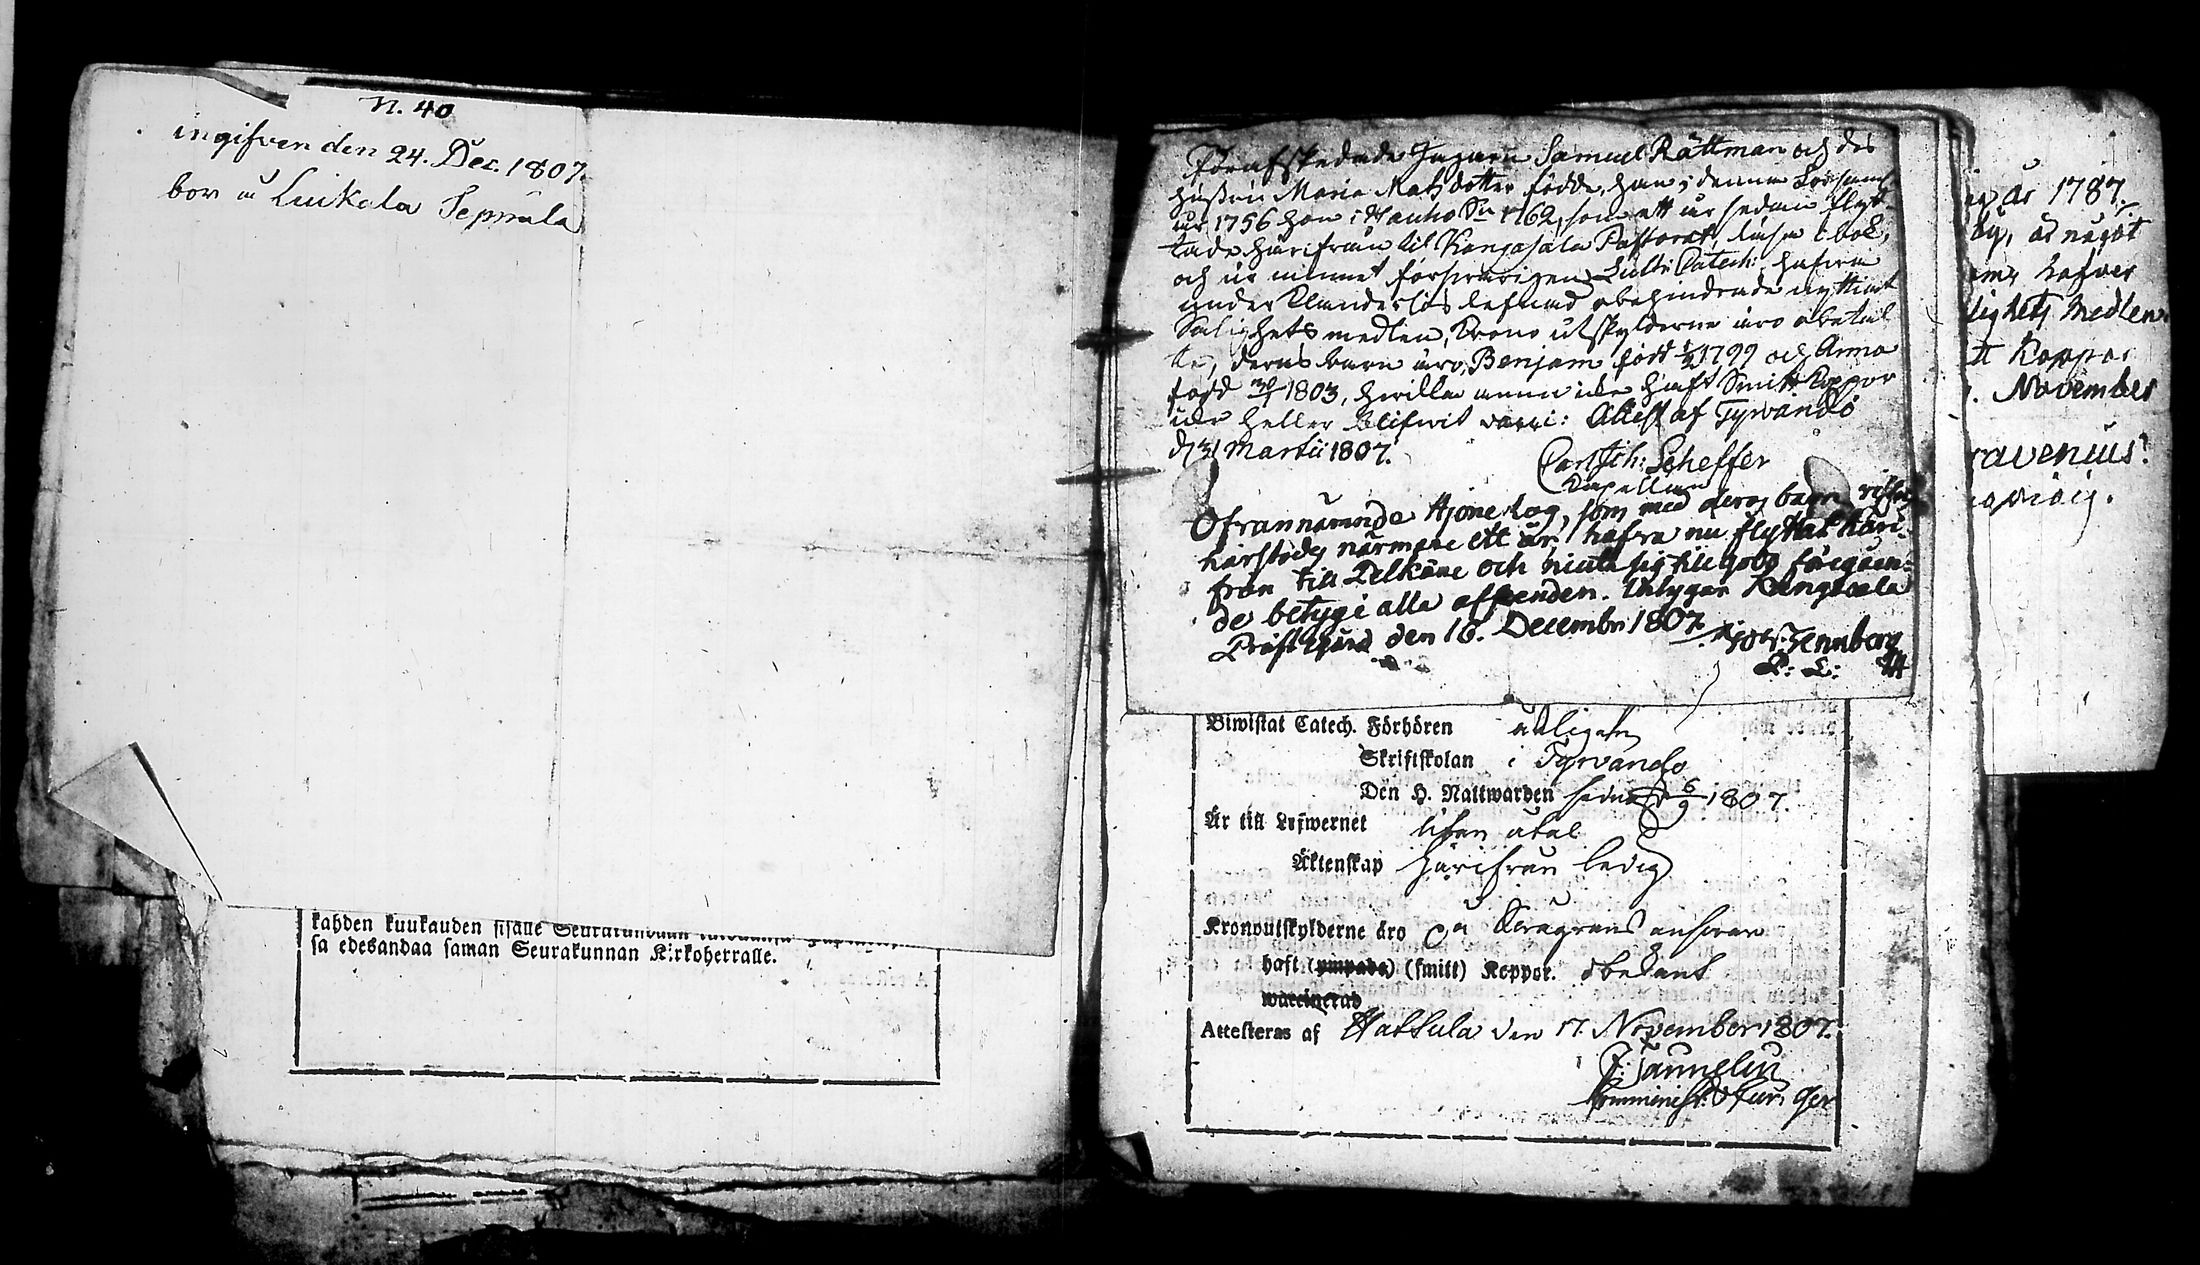 N. 40
ingifven den 24. Dec. 1807.
bor a Luikala Seppälä
kahden kuukauden sisälle Seurakundaan
sa edesandaa saman Seurakunnan Kirkoherralle.
Förafskedade Jägaren Samuel Rättman och des
hustru Maria Matsdotter födde, han i denna Församl
år 1756 hon i Hauho Sn 1762, som ett år sedan flyt-
tade härifrån til Kangasala Pastorat, läsa i bok,
och ur minnet försvarligen Luth: Catech: hafva
under Klanderlös lefnad obehindrade nyttiat
Salighets medlen, Krono utskylderne äro obetal
te, deras barn äro, Benjam född 1799 och Anna
född 30/ 1803, hvilka ännu icke haft Smitt Koppor
icke heller blifvit vacci: Attest af Tyrvändö
d 31 Martii 1807.
Carl Joh: Scheffer
Kapellan
Ofvannämnde Hjonelag, som med deras barn
härstädes närmare ett år, hafva nu flyttat häri-
från till Pelkäne och niuta sig till godo föregåen-
de betyg i alla afseenden. Utlygar Kangasala
Prästgård den 16. Decembr 1807.
Tennberg
P: L:
Biwistat Catech. Förhören årligen
Skriftskolan i Tyrvändö
Den H. Nattwarden sednast d 6/9 1807.
Är till Lefwernet utan åtal
Äktenskap härifrån ledig
Kronoutskylderne äro på Kragrens ansvar
haft (ympade) (smitt) Koppor. obekant
waccinerad
Attesteras af Hattula den 17 November 1807.
F: Jaunelin
År 1787.
by, as något
hafver
lighets Medlen
tt Koppor
. November
ravenius.